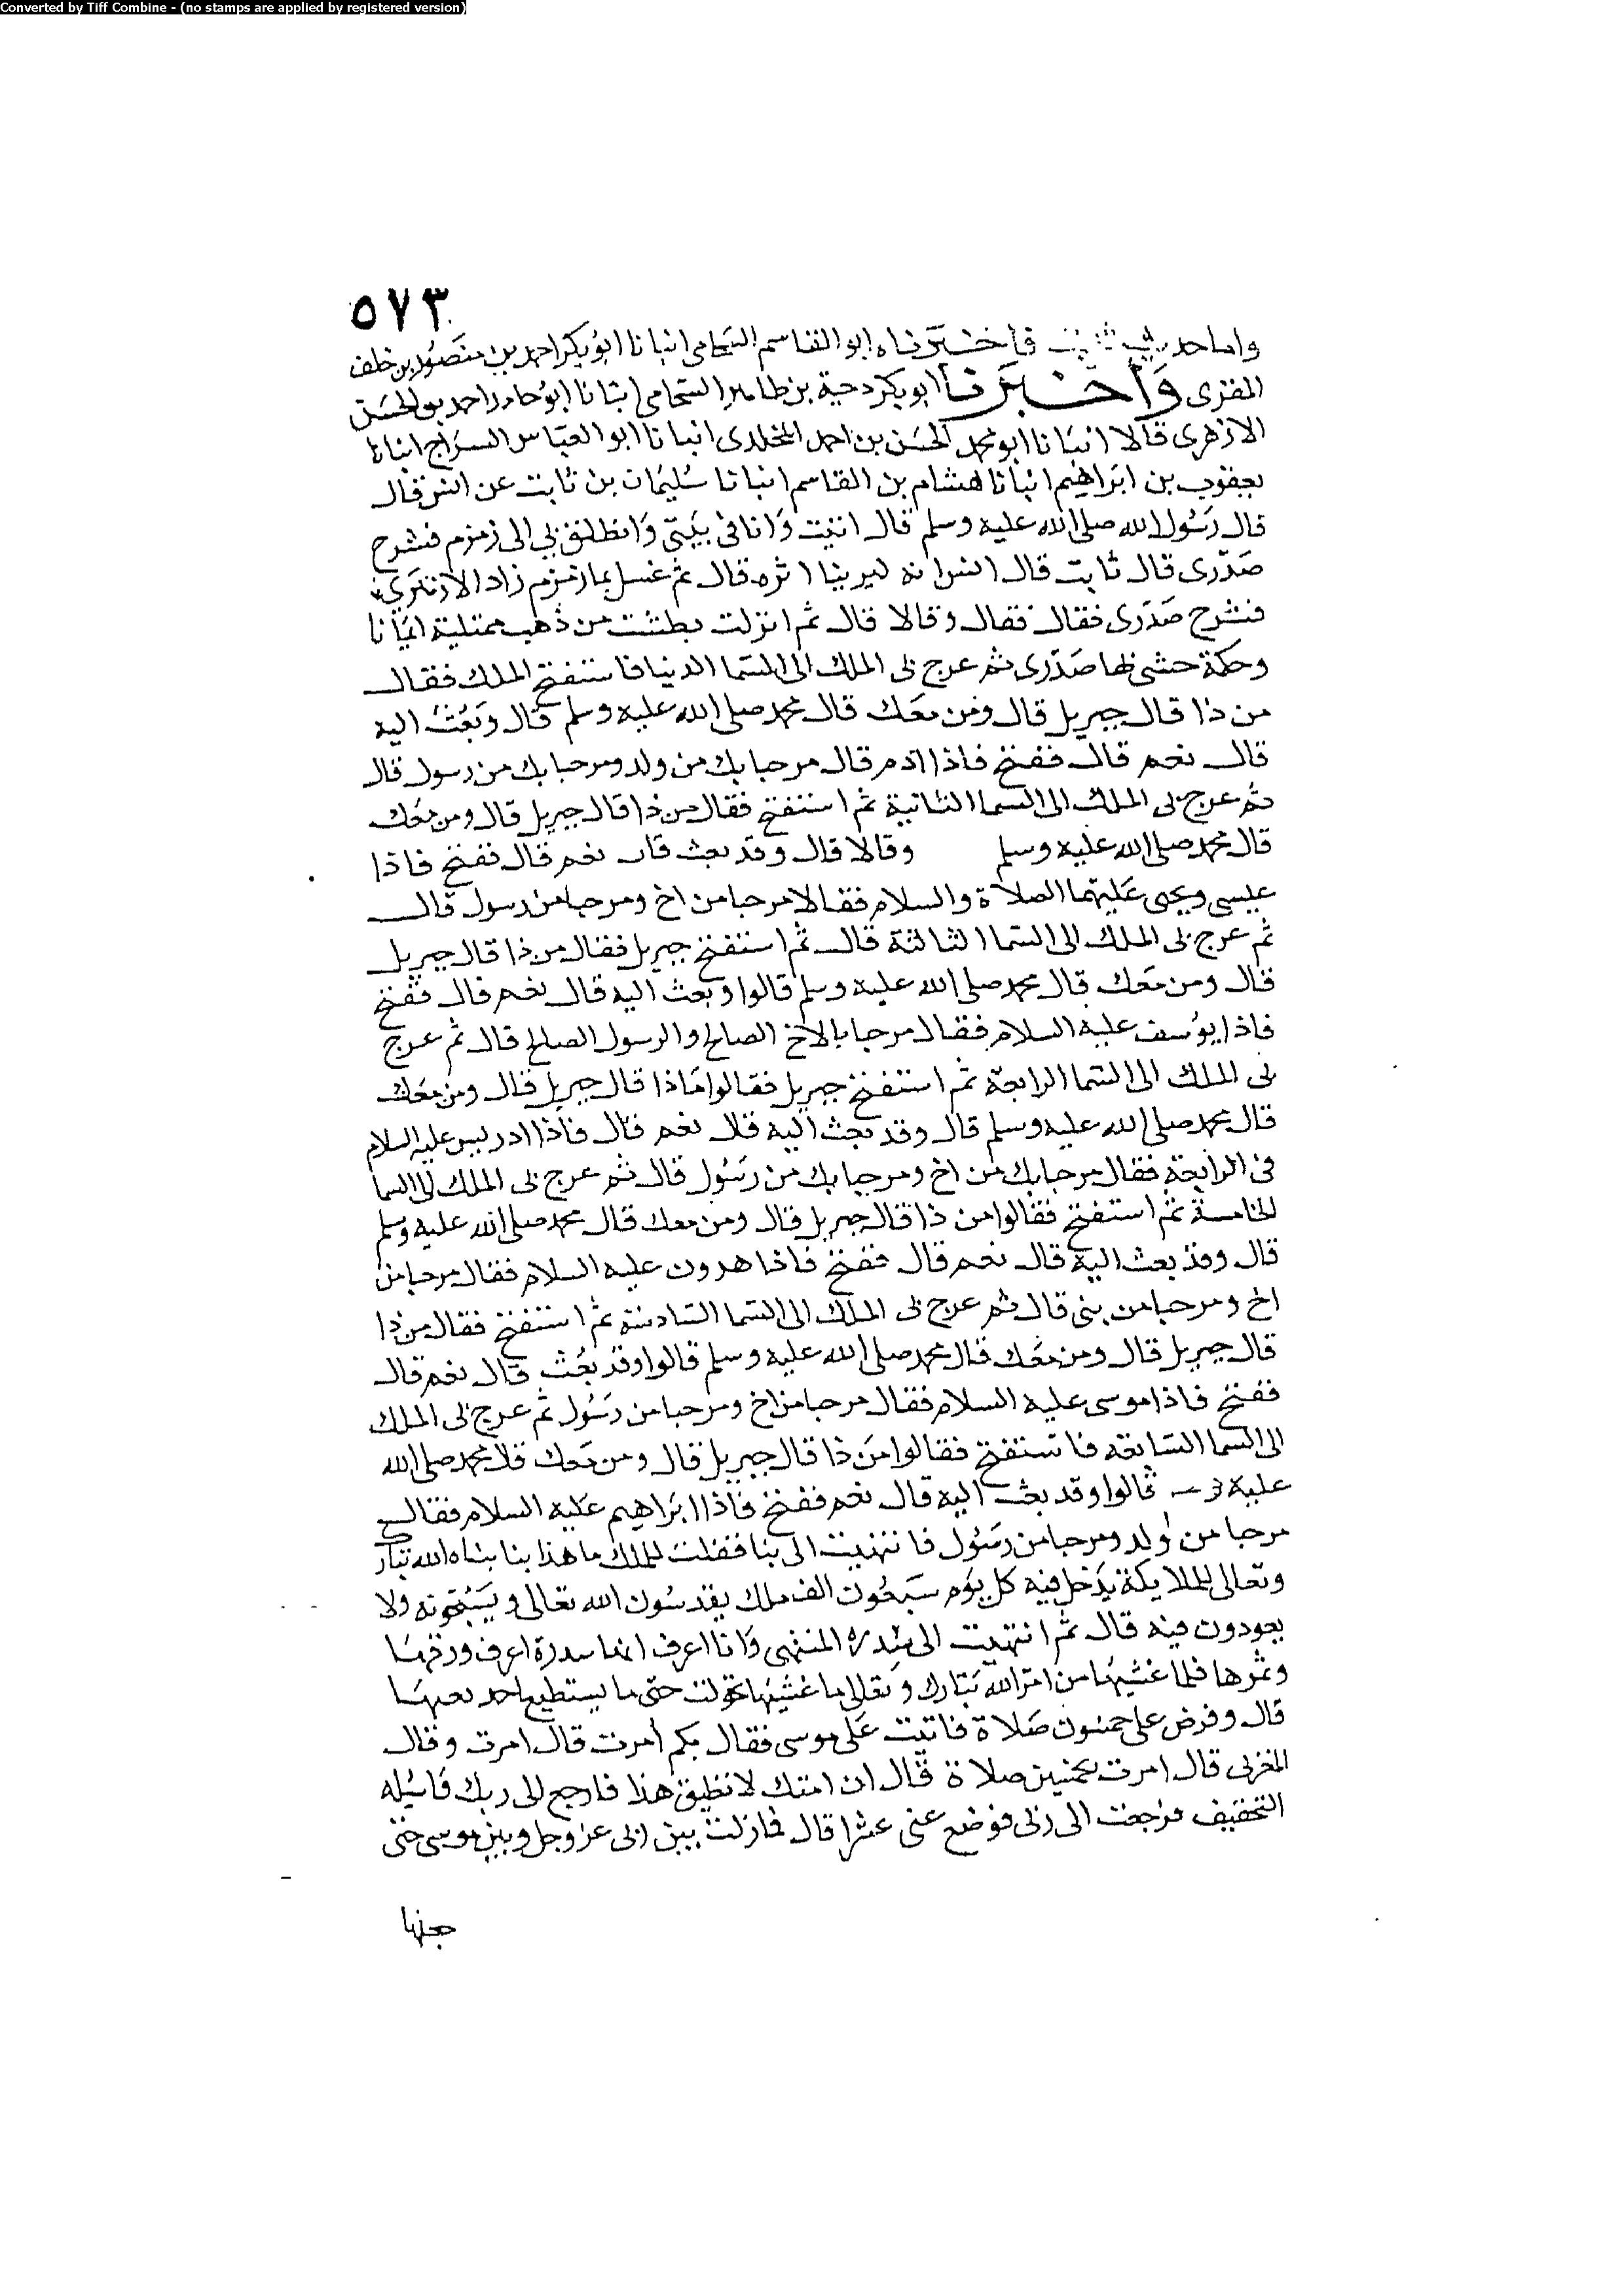 Converted by Tiff Combine - (no stamps are applied by registered version)
٥٧٣
واما حديث ثابت فأخبرناه ابو القاسم الشحامى انبانا ابو بكر احمد بن منصور بن خلف
المغربى وأخبرنا ابو بكر وجيه بن طاهر الشحامى انبانا ابو حامد احمد بن الحسن
الازهرى قالا انبانا ابو محمد الحسن بن احمد المخلدى انبانا ابو العباس السراج انبانا
يعقوب بن ابراهيم انبانا هشام بن القاسم انبانا سليمان بن ثابت عن انس قال
قال رسول الله صلى الله عليه وسلم قال اتيت وانا فى بيتى وانطلق بى الى زمزم فشرح
صدرى قال ثابت قال انس انه ليرينا اثره قال ثم غسل بما زمزم زاد الازهرى
فشرح صدرى فقال فقال وقالا قال ثم انزلت بطشت من ذهب ممتلية ايمانا
وحكمة حشى بها صدرى ثم عرج بى الملك الى السما الدنيا فاستفتح الملك فقال
من ذا قال جبريل قال ومن معك قال محمد صلى الله عليه وسلم قال وبعث اليه
قال نعم قال ففتح فاذا ادم قال مرحبا بك من ولد ومرحبا بك من رسول قال
ثم عرج بى الملك الى السما الثانية ثم استفتح فقال من ذا قال جبريل قال ومن معك
قال محمد صلى الله عليه وسلم وقالا قال وقد بعث قال نعم قال ففتح فاذا
عيسى ويحيى عليهما الصلاة والسلام فقالا مرحبا من اخ ومرحبا من رسول قال
ثم عرج بى الملك الى السما الثالثة قال ثم استفتح جبريل فقال من ذا قال جبريل
قال ومن معك قال محمد صلى الله عليه وسلم قالوا وبعث اليه قال نعم قال ففتح
فاذا يوسف عليه السلام فقال مرحبا بالاخ الصالح والرسول الصالح قال ثم عرج
بى الملك الى السما الرابعة ثم استفتح جبريل فقالوا ماذا قال جبريل قال ومن معك
قال محمد صلى الله عليه وسلم قال وقد بعث اليه قال نعم قال فاذا ادريس عليه السلام
فى الرابعة فقال مرحبا بك من اخ ومرحبا بك من رسول قال ثم عرج بى الملك الى السما
الخامسة ثم استفتح فقالوا من ذا قال جبريل قال ومن معك قال محمد صلى الله عليه وسلم
قال وقد بعث اليه قال نعم قال ففتح فاذا هرون عليه السلام فقال مرحبا من
اخ ومرحبا من بنى قال ثم عرج بى الملك الى السما السادسة ثم استفتح فقال من ذا
قال جبريل قال ومن معك قال محمد صلى الله عليه وسلم قالوا وقد بعث قال نعم قال
ففتح فاذا موسى عليه السلام فقال مرحبا من اخ ومرحبا من رسول ثم عرج بى الملك
الى السما السابعه فاستفتح فقالوا من ذا قال جبريل قال ومن معك قال محمد صلى الله
عليه قالوا وقد بعث اليه قال نعم ففتح فاذا ابراهيم عليه السلام فقال
مرحبا من ولد ومرحبا من رسول فانتهيت الى بنا فقلت للملك ما هذا بنا بناه الله تبارك
وتعالى للملايكة يدخل فيه كل يوم سبعون الف ملك يقدسون الله تعالى ويسبحونه ولا
يعودون فيه قال ثم انتهيت الى سدرة المنتهى وانا اعرف انها سدرة اعرف ورقها
وثمرها فلما غشيها من امر الله تبارك وتعالى ما غشيها تحولت حتى ما يستطيع احد نعتها
قال وفرض على خمسون صلاة فاتيت على موسى فقال بكم أمرت قال امرت وقال
المغربى قال امرت بخمسين صلاة قال ان امتك لا تطيق هذا فارجع الى ربك فاسئله
التخفيف فرجعت الى ربى فوضع عنى عشرا قال فمازلت بين ربى عز وجل وبين موسى حتى
جعلها